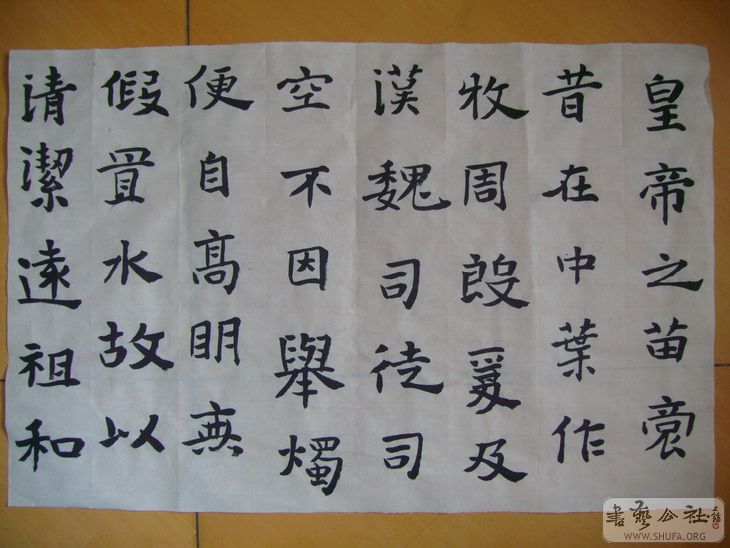 皇帝之苗裔
昔在中葉作
牧周殷爰及
漢魏司徒司
空不因舉燭
便自髙眀無
假置水故以
清潔遠祖和
書藝公社
WWW.SHUFA.ORG